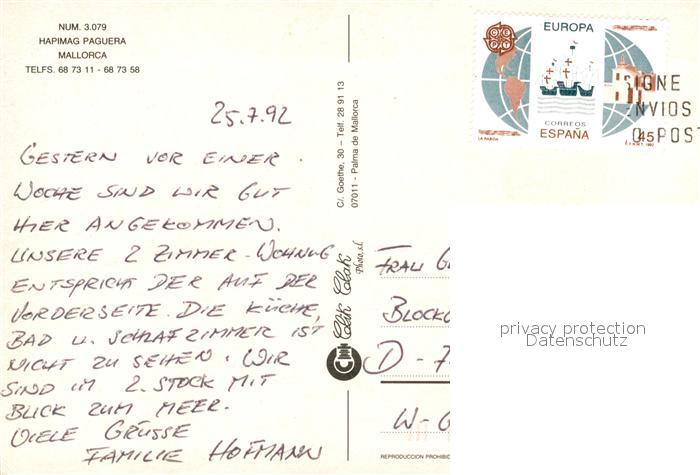 NUM. 3.079
HAPIMAG PAGUERA
MALLORCA
TELFS. 68 73 11 - 68 73 58
25.7.92
GESTERN VOR EINER
WOCHE SIND WIR GUT
HIER ANGEKOMMEN.
UNSERE 2 ZIMMER-WOHNUG
ENTSPRICHT DER AUF DER
VORDERSEITE. DIE KÜCHE,
BAD U. SCHLAFZIMMER IST
NICHT ZU SEHEN. WIR
SIND IM 2. STOCK MIT
BLICK ZUM MEER.
VIELE GRÜSSE
FAMILIE HOFMANN
C/. Goethe, 30 – Telf. 28 91 13
07011 - Palma de Mallorca
Clik Clak
Photo, s.l.
CEPT
EUROPA
CORREOS
ESPAÑA
45
LA RABIDA
1992
SIGNE
ENVIOS
O POST
FRAU
BLOCK
D - 7
W - G
REPRODUCCION PROHIBID
privacy protection
Datenschutz